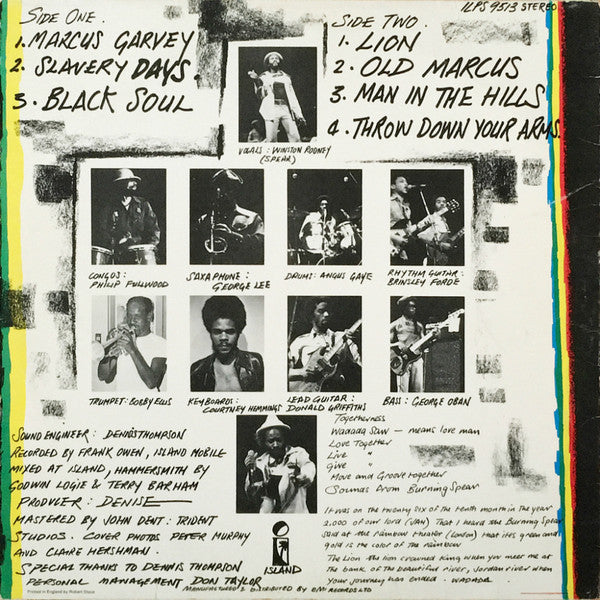 ILPS 9513 STEREO
SIDE ONE.
1. MARCUS GARVEY
2. SLAVERY DAYS.
3. BLACK SOUL
SIDE TWO.
1. LION
2. OLD MARCUS
3. MAN IN THE HILLS
4. THROW DOWN YOUR ARMS.
VOCALS: WINSTON RODNEY
(SPEAR)
CONGOS:
PHILIP FULLWOOD
SAXAPHONE:
GEORGE LEE
DRUMS: ANGUS GAYE
RHYTHM GUITAR:
BRINSLEY FORDE
TRUMPET: BOBBY ELLIS
KEYBOARDS:
COURTNEY HEMMINGS
LEAD GUITAR:
DONALD GRIFFITHS
BASS: GEORGE OBAN
SOUND ENGINEER: DENNIS THOMPSON
RECORDED BY FRANK OWEN, ISLAND MOBILE
MIXED AT ISLAND, HAMMERSMITH BY
GODWIN LOGIE & TERRY BARHAM
PRODUCER: DENISE
MASTERED BY JOHN DENT: TRIDENT
STUDIOS. COVER PHOTOS PETER MURPHY
AND CLAIRE HERSHMAN.
SPECIAL THANKS TO DENNIS THOMPSON
PERSONAL MANAGEMENT DON TAYLOR
Printed in England by Robert Stace
ISLAND
MANUFACTURED & DISTRIBUTED BY EMI RECORDS LTD
Togetherness
Wadada Saw — means love man
Love Together
Live "
Give "
Move and Groove together
(Sounds from Burning Spear)
It was on the twenty six of the tenth month in the year
2.000 of our lord (JAH) That I heard the Burning Spear
said at the rainbow theater (London) that its green and
gold is the color of the rainbow
The Lion the iron crowned king when you meet me at
the bank of the beautiful river, Jordan river when
your journey has ended. - WADADA.